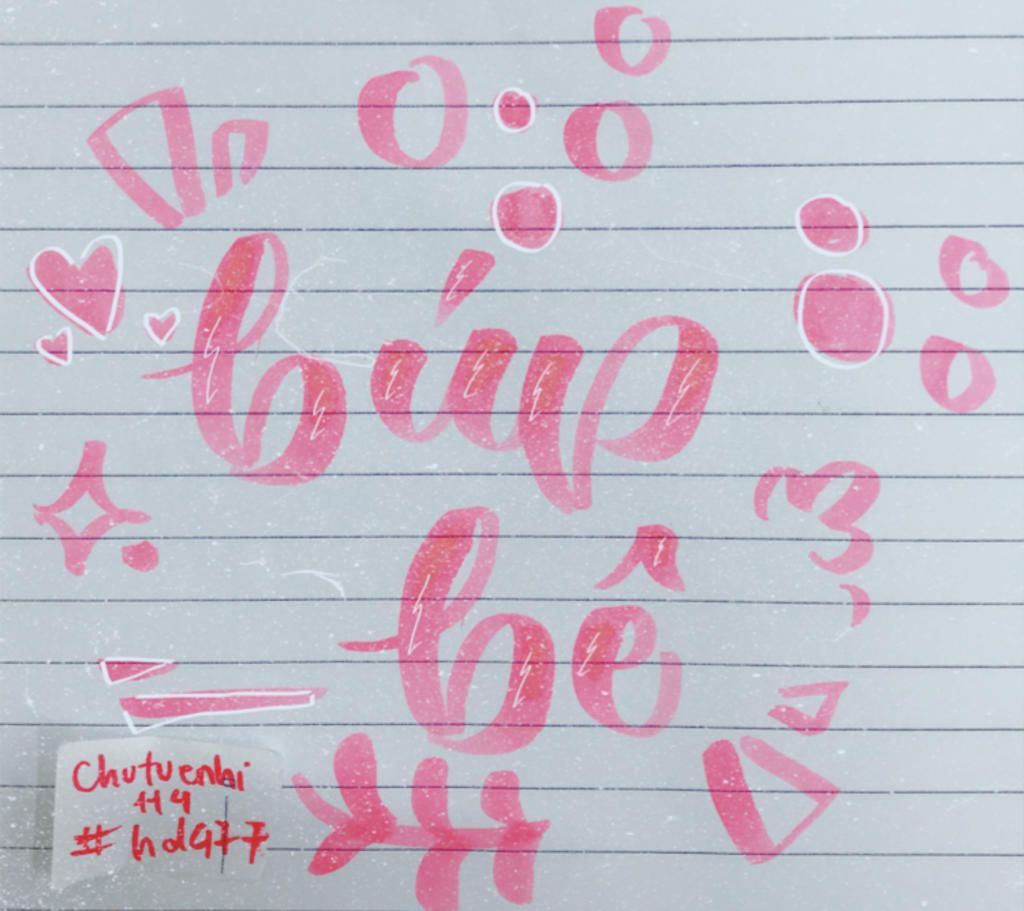 búp
bê
Chutuenhi
114
#hd977